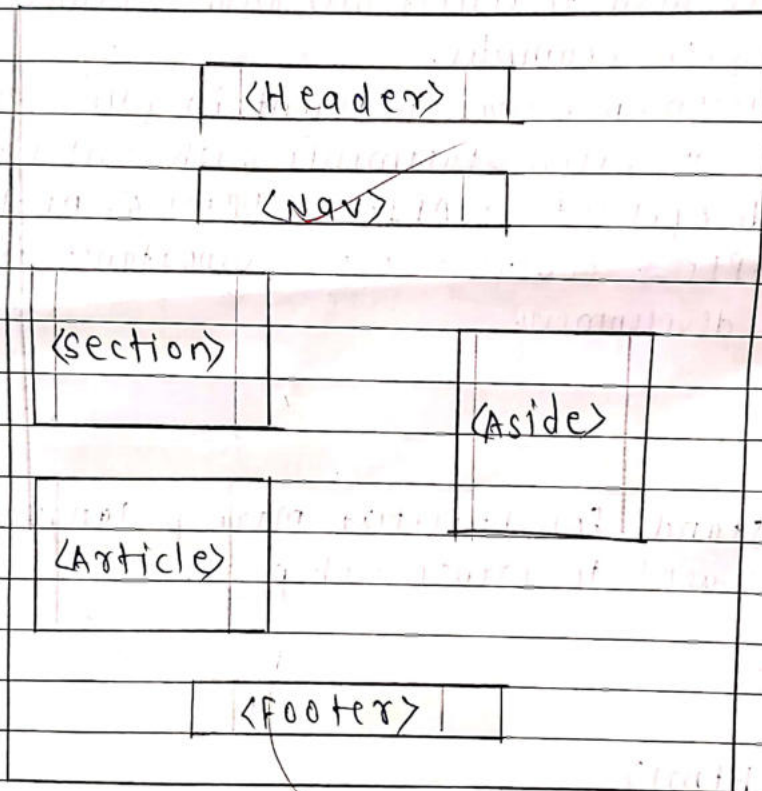 <Header>
<Nav>
<section>
<Aside>
<Article>
<Footer>